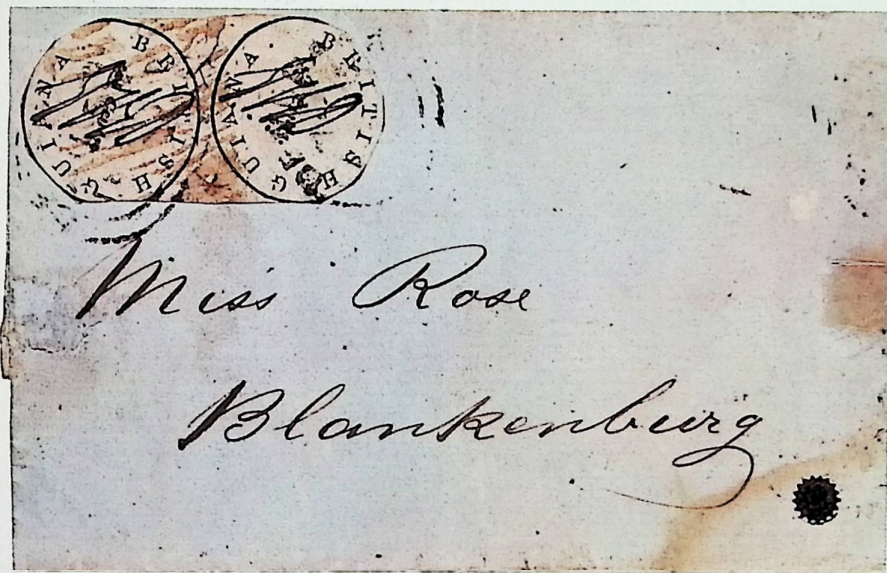 BRITISH GUIANA.
BRITISH GUIANA.
Miss Rose
Blankenburg